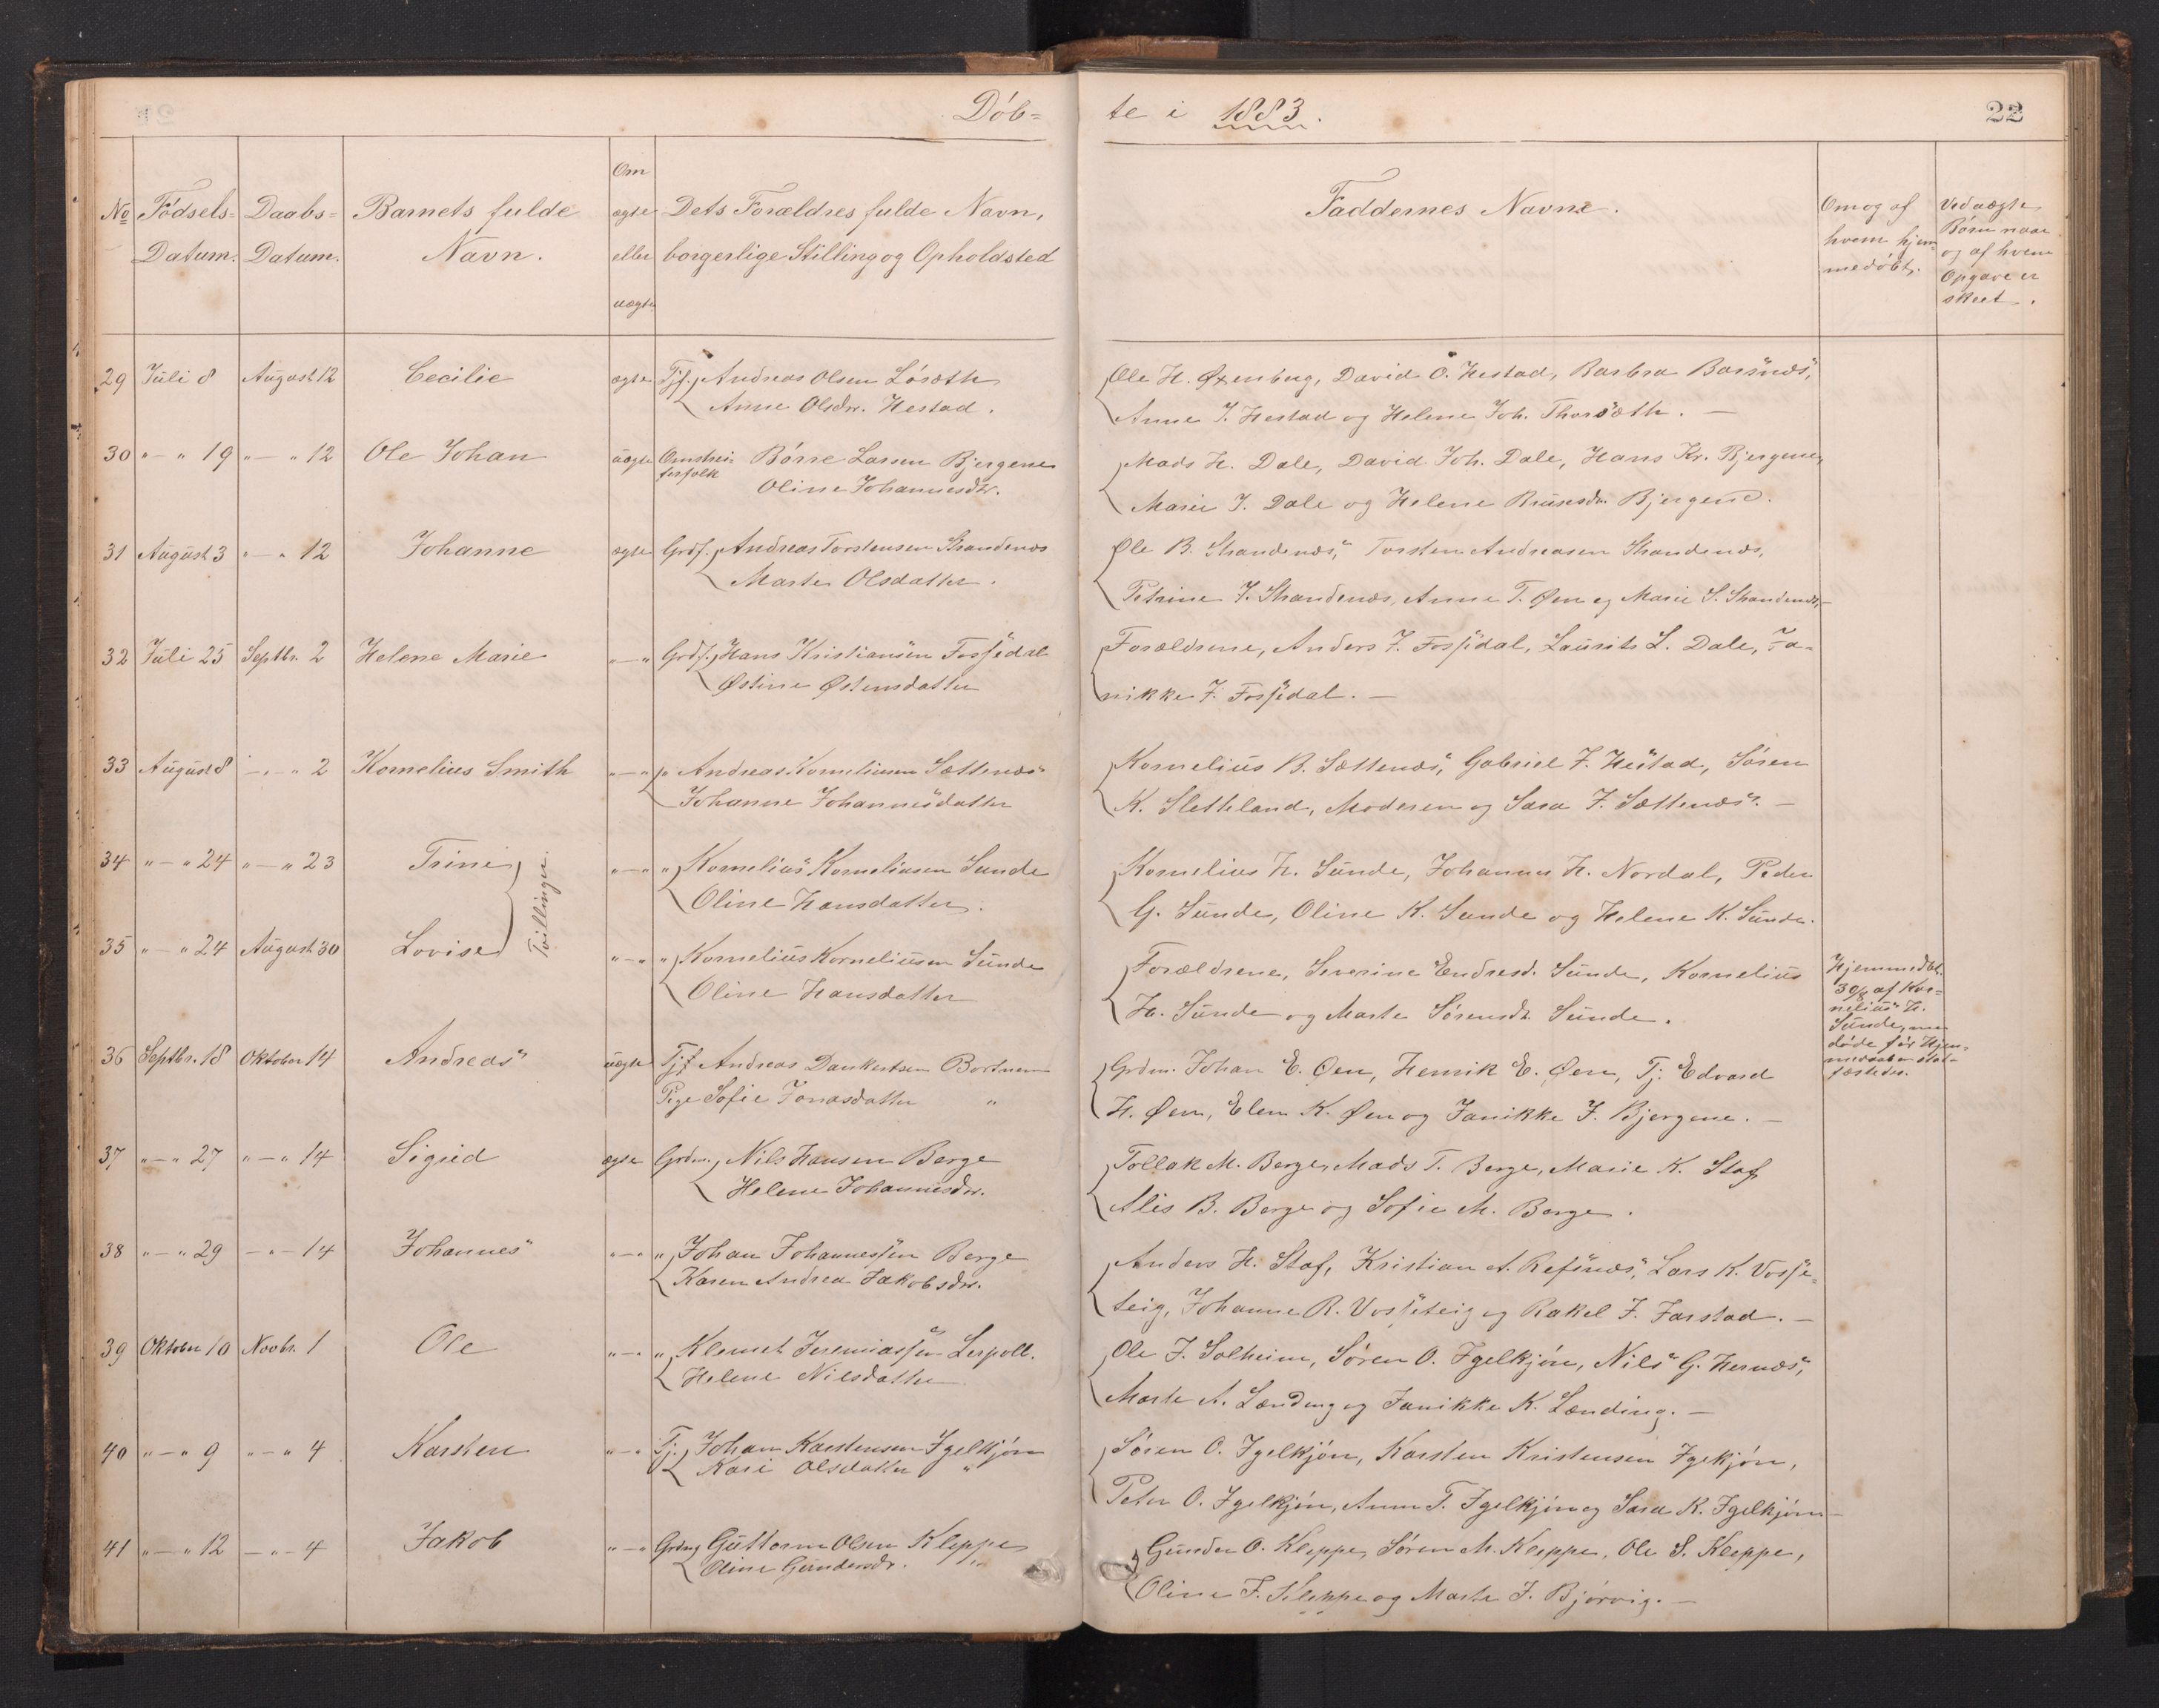 Döb= te i 1883. 22
No Födsels= Datum. Daabs= Datum. Barnets fulde Navn. Om ægte eller uægte. Dets Forældres fulde Navn, borgerlige Stilling og Opholdsted Faddernes Navne. Om og af hvem hjemmedöbt. Ved uægte Börn naar og af hvem Opgave er skeet.
29 Juli 8 August 12 Cecilie ægte Tjf. Andreas Olsen Lösæth Ole H. Øxenberg, David O. Hestad, Barbra Barsnæs,
Anne Olsdr. Hestad. Anne J. Hestad og Helene Joh. Thorsæth. —
30 " — " 19 " — " 12 Ole Johan uægte Omstreiferfolk Börre Larsen Bjergene Mads H. Dale, David Joh. Dale, Hans Kr. Bjergene,
Oline Johannesdtr. Marie J. Dale og Helene Brunsdr. Bjergene.
31 August 3 " — " 12 Johanne ægte Grdf. Andreas Torstensen Strandenæs Ole B. Strandenæs, Torsten Andreasen Strandenæs,
Marte Olsdatter. Petrine J. Strandenæs, Anne T. Øen og Marie S. Strandenæs, —
32 Juli 25 Septbr. 2 Helene Marie " — " Grdf. Hans Kristiansen Fossedal Forældrene, Anders J. Fossedal, Laurits L. Dale, Ja-
Østine Østensdatter nikke J. Fossedal. —
33 August 8 " — " 2 Kornelius Smith " — " " Andreas Korneliusen Sættenæs Kornelius B. Sættenæs, Gabriel J. Hestad, Sören
Johanne Johannesdatter K. Sletteland, Moderen og Sara J. Sættenæs. —
34 " — " 24 " — " 23 Trine Tvillinger. " — " " Kornelius Korneliusen Sunde Kornelius H. Sunde, Johannes H. Nordal, Peder
Oline Hansdatter. G. Sunde, Oline K. Sunde og Helene K. Sunde.
35 " — " 24 August 30 Lovise " — " " Kornelius Korneliusen Sunde Forældrene, Severine Endresd. Sunde, Kornelius
Oline Hansdatter H. Sunde og Marte Sörensdr. Sunde.
Hjemmedbt.
30/8 af Kor=
nelius H.
Sunde, men
döde för Hjem=
medaaben stad=
fæstedes.
36 Septbr. 18 Oktober 14 Andreas uægte Tjf Andreas Dankertsen Bortnen Grdm. Johan E. Øen, Henrik E. Øen, Tj. Edvard
Pige Sofie Jonasdatter " H. Øen, Elen K. Øen og Janikke J. Bjergene. —
37 " — " 27 " — " 14 Sigrid ægte Grdm. Nils Hansen Berge Tollak M. Berge, Mads T. Berge, Marie K. Staf,
Helene Johannesdr. Alis B. Berge og Sofie M. Berge.
38 " — " 29 — " — 14 Johannes " — " " Johan Johannessen Berge Anders H. Staf, Kristian A. Refsnæs, Lars K. Vosse=
Karen Andrea Jakobsdr. teig, Johanne R. Vosseteig og Rakel J. Farstad. —
39 Oktober 10 Novbr. 1 Ole " — " " Klemet Jeremiassen Lerpoll. Ole J. Solheim, Sören O. Igelkjön, Nils G. Hernæs,
Helene Nilsdatter Marte A. Lænding og Janikke K. Lænding. —
40 " — " 9 " — " 4 Karsten " — " Tj. Johan Karstensen Igelkjön Sören O. Igelkjön, Karsten Kristensen Igelkjön,
Kari Olsdatter " Peter O. Igelkjön, Anne T. Igelkjön og Sara K. Igelkjön —
41 " — " 12 — " — 4 Jakob " — " Grdm Guttorm Olsen Kleppe Gunder O. Kleppe, Sören M. Kleppe, Ole S. Kleppe,
Oline Gundersdr. Oline F. Kleppe og Marte J. Björvig. —